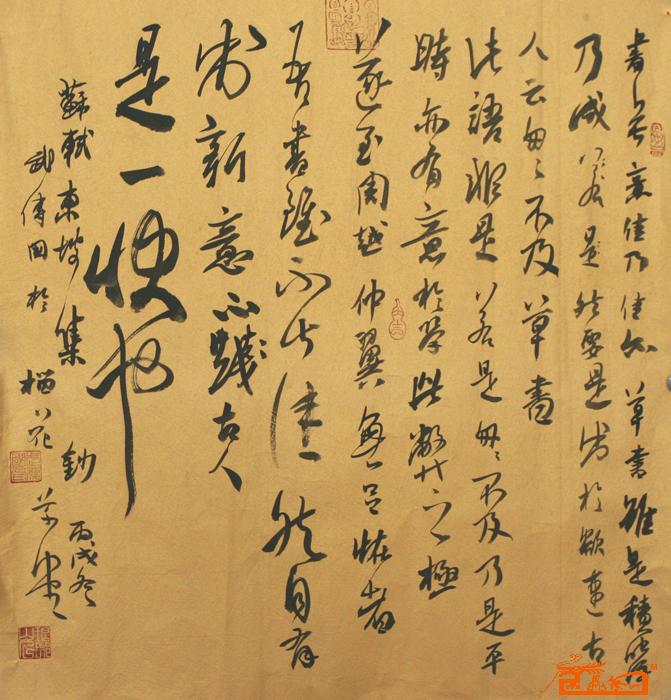 書無意佳乃佳尔草書雖是積學
乃成然是要是出於欲速古
人云匆匆不及草書
此語非是若是匆匆不及乃是平
時亦有意於學此弊之極
遂至周越仲翼無足怪者
吾書雖不甚佳然自有
出新意不踐古人
是一快也
蘇軾東坡集鈔丙戌冬
武傳國於